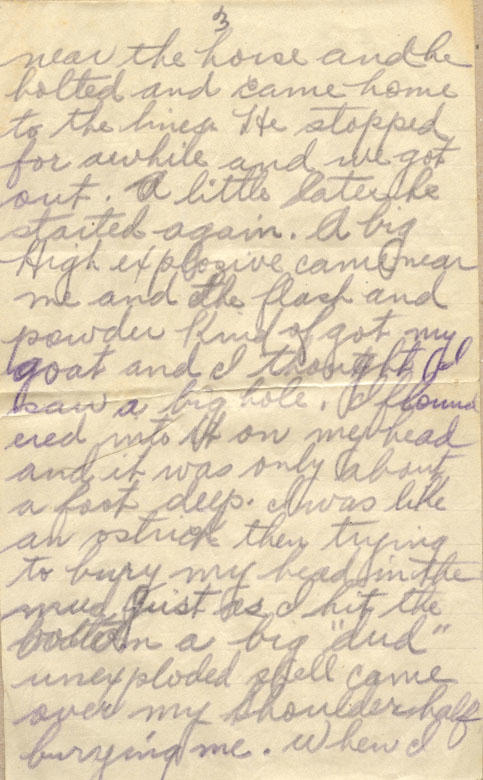 3
near the horse and he
bolted and came home
to the lines. He stopped
for awhile and we got
out. A little later he
started again. A big
High explosive came near
me and the flash and
powder kind of got my
goat and I thought I
saw a big hole. I flound
ered into it on my head
and it was only about
a foot deep. I was like
an ostrich then trying
to bury my head in the
mud. Just as I hit the
bottom a big "dud"
unexploded shell came
over my shoulder half
burying me. When I